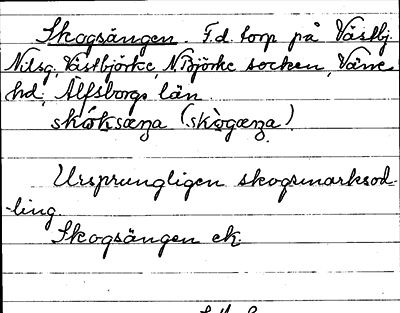 Skogsängen. F.d. torp på Västbj.
Nilsg, Västbjörke, N. Björke socken, Väne
hd, Älfsborgs län.
skóksæŋa (skògæŋa).
Ursprungligen skogsmarksod-
ling.
Skogsängen ek.